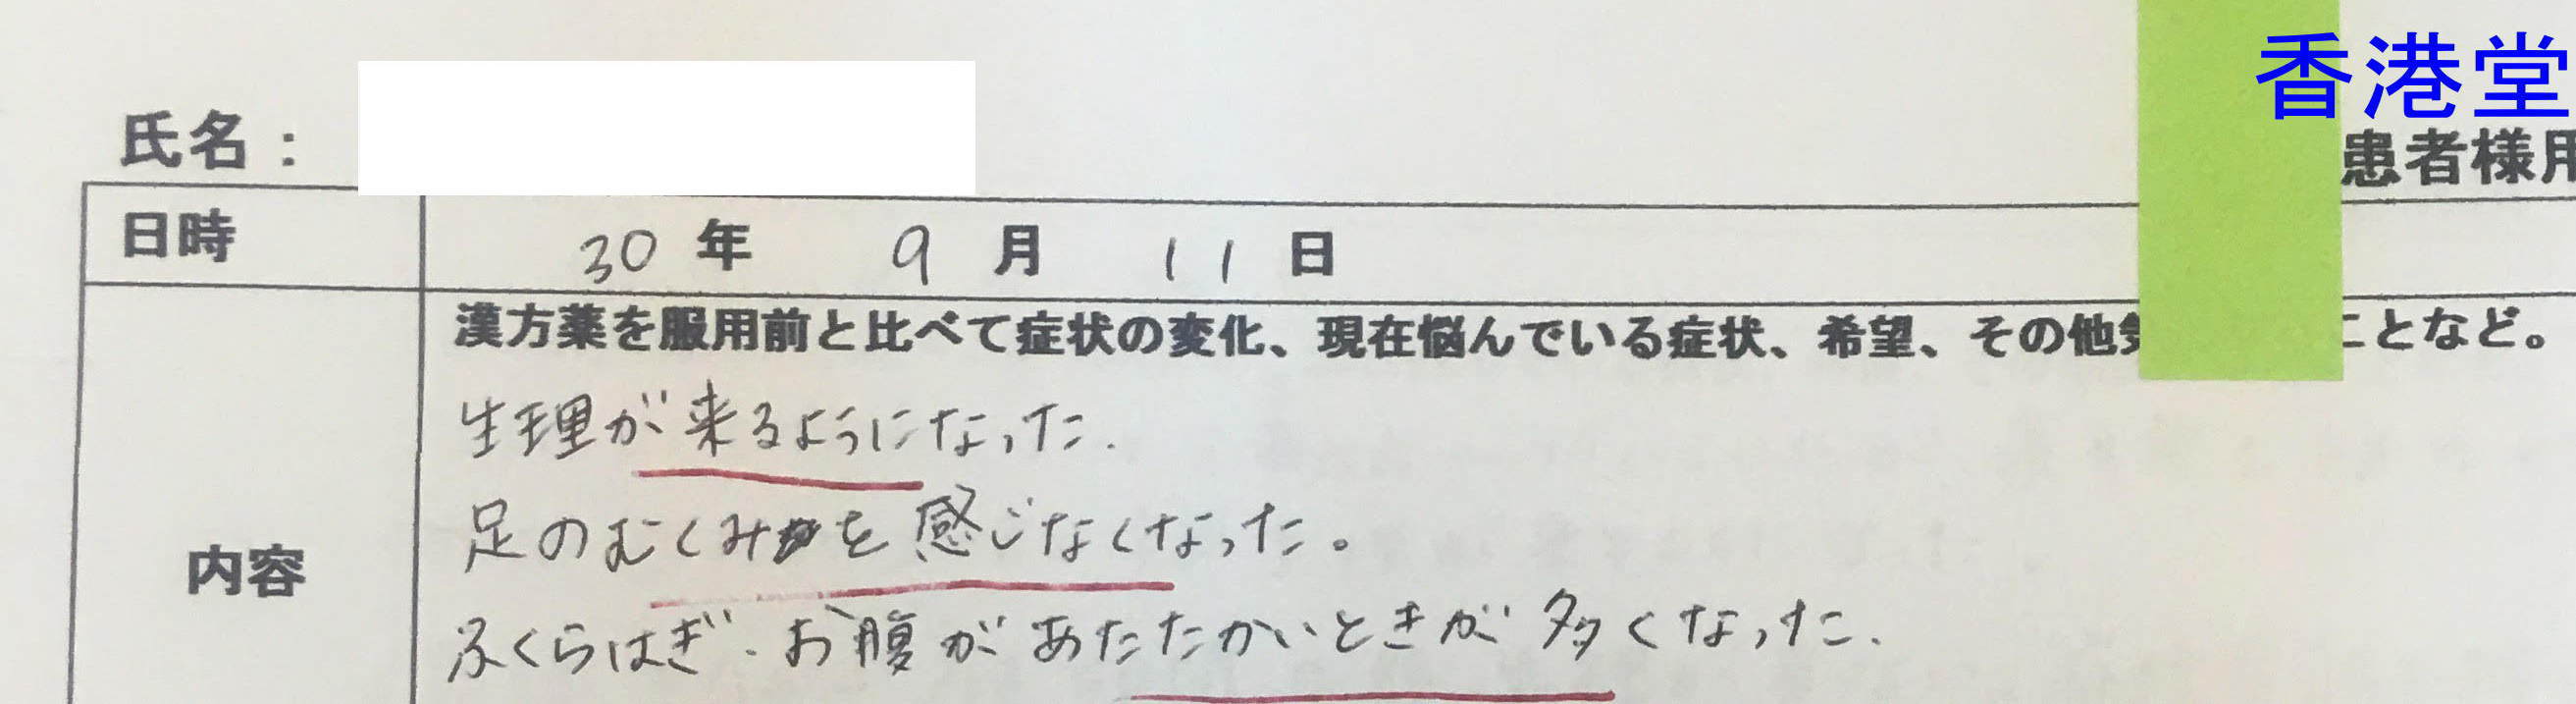 香港堂
氏名：
患者様用
日時 30年 9月 11日
漢方薬を服用前と比べて症状の変化、現在悩んでいる症状、希望、その他 ことなど。
内容
生理が来るようになった.
足のむくみを感じなくなった。
ふくらはぎ・お腹があたたかいときが多くなった.